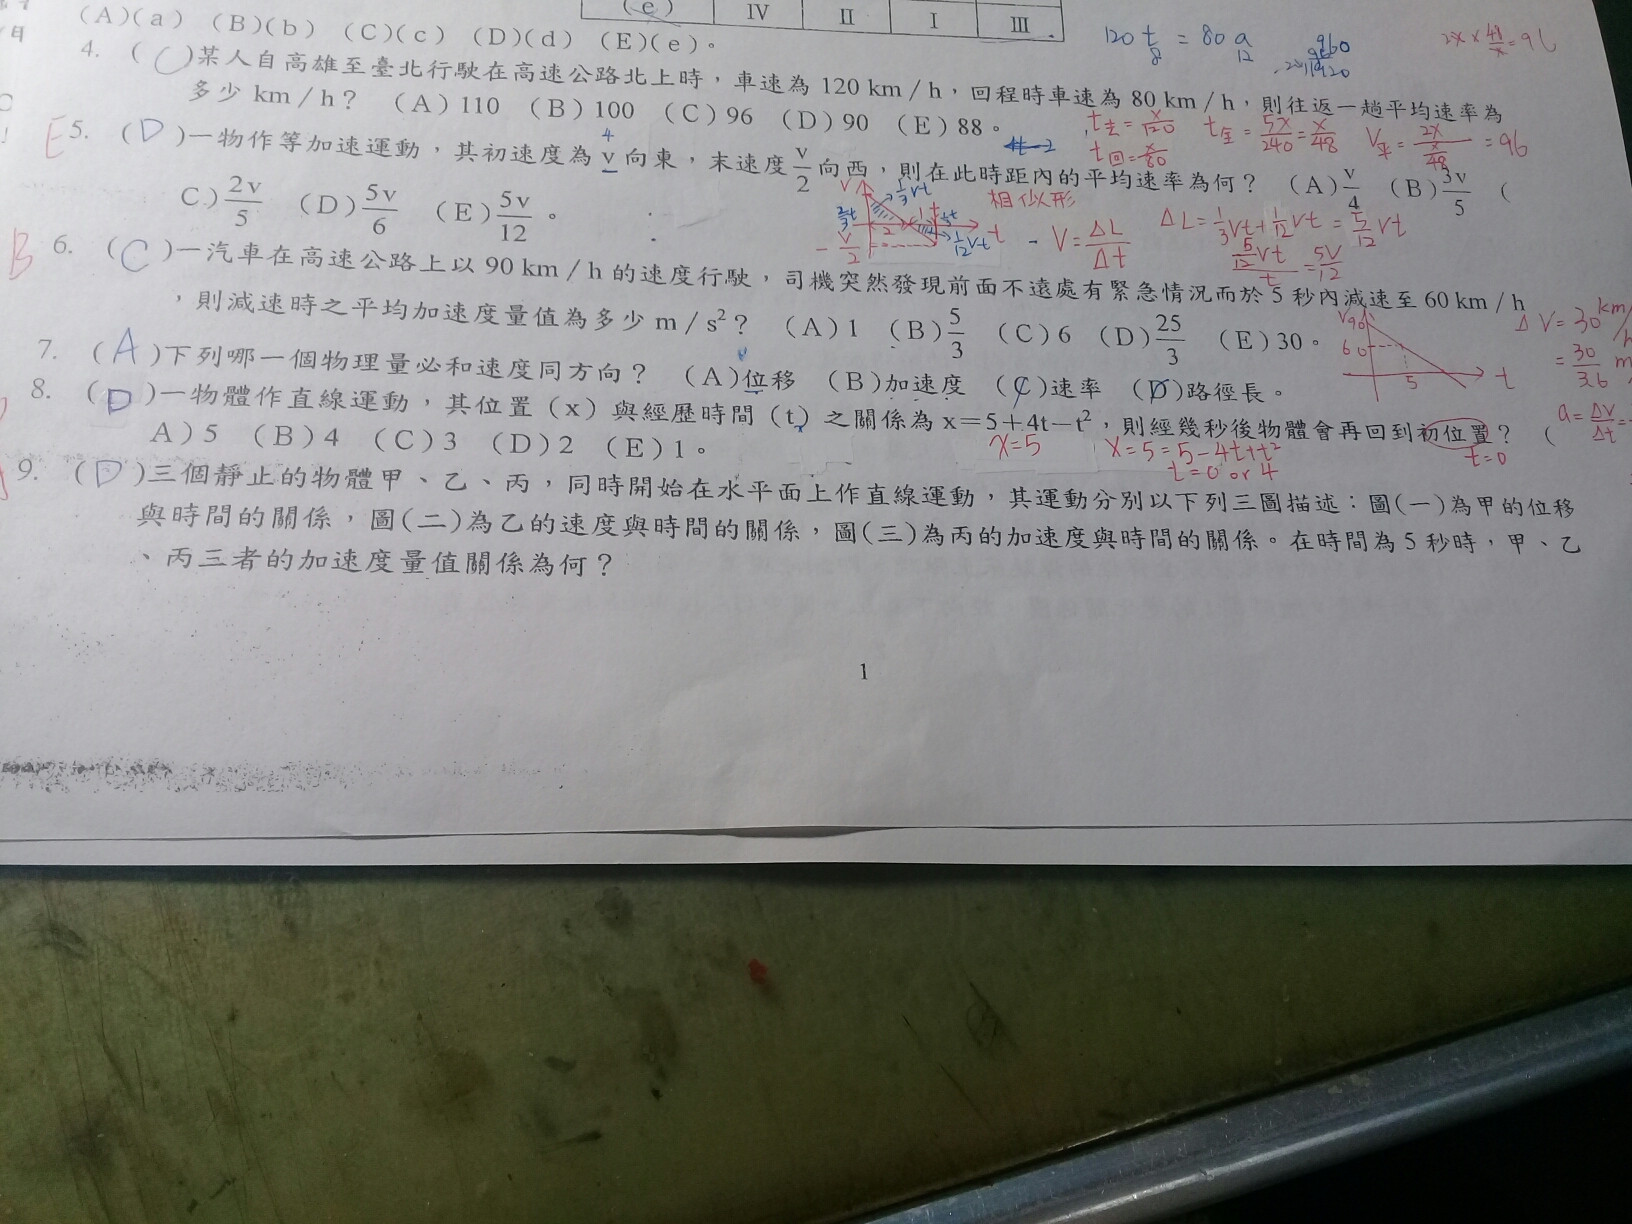 (e) IV II I III
(A)(a) (B)(b) (C)(c) (D)(d) (E)(e)。
120 t = 80 a
8 12
960
2x × 48/x = 96
4. (C)某人自高雄至臺北行駛在高速公路北上時，車速為 120 km/h，回程時車速為 80 km/h，則往返一趟平均速率為
多少 km/h？ (A)110 (B)100 (C)96 (D)90 (E)88。
t去 = x/120 t全 = 5x/240 = x/48 V平 = 2x/(x/48) = 96
t回 = x/80
E 5. (D)一物作等加速運動，其初速度為 v 向東，末速度 v/2 向西，則在此時距內的平均速率為何？ (A) v/4 (B) 3v/5 (
C.) 2v/5 (D) 5v/6 (E) 5v/12。
4
相似形
V 1/3 vt
2/3 t 1/3 t
-V/2 1/12 vt t
V = ΔL/Δt ΔL = 1/3 vt + 1/12 vt = 5/12 vt
5/12 vt / t = 5V/12
B 6. (C)一汽車在高速公路上以 90 km/h 的速度行駛，司機突然發現前面不遠處有緊急情況而於 5 秒內減速至 60 km/h
，則減速時之平均加速度量值為多少 m/s²？ (A)1 (B) 5/3 (C)6 (D) 25/3 (E)30。
V 90 60 5 t
ΔV = 30 km/h
= 30/3.6 m
a = ΔV/Δt =
7. (A)下列哪一個物理量必和速度同方向？ (A)位移 (B)加速度 (C)速率 (D)路徑長。
8. (D)一物體作直線運動，其位置(x)與經歷時間(t)之關係為 x=5+4t−t²，則經幾秒後物體會再回到初位置？ (
A)5 (B)4 (C)3 (D)2 (E)1。
x=5 x=5=5-4t+t² t=0
t=0 or 4
9. (D)三個靜止的物體甲、乙、丙，同時開始在水平面上作直線運動，其運動分別以下列三圖描述：圖(一)為甲的位移
與時間的關係，圖(二)為乙的速度與時間的關係，圖(三)為丙的加速度與時間的關係。在時間為 5 秒時，甲、乙
、丙三者的加速度量值關係為何？
1